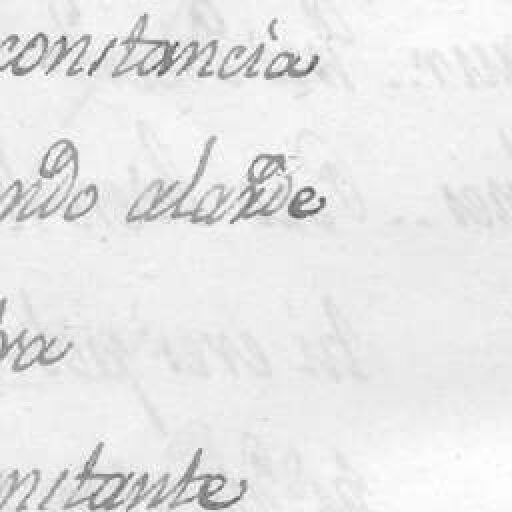 constancia
ndo alarde
bra
nstante